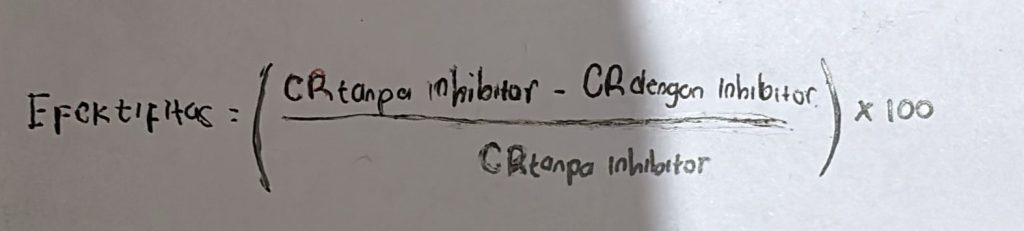 Efektifitas = ( CR tanpa inhibitor - CR dengan inhibitor. / CR tanpa inhibitor ) x 100